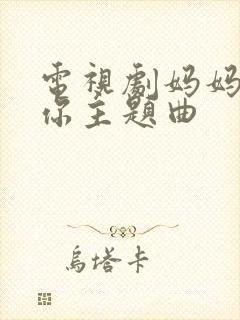 電視劇妈妈
你主題曲
烏塔卡